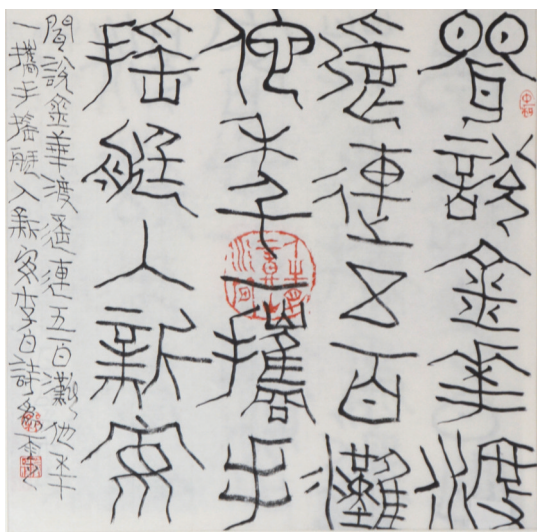 聞說金華渡
遙連五百灘
他年一攜手
搖艇入新安
聞說金華渡遙連五百灘他年
一攜手搖艇入新安李白詩